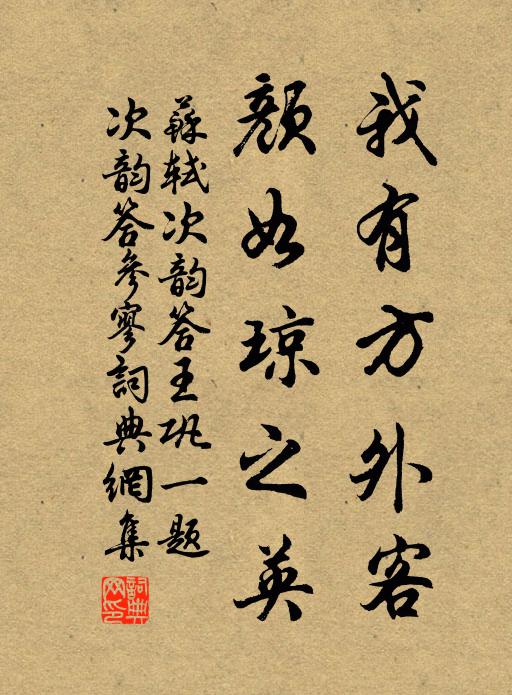 我有方外客
顏如琼之英
蘇軾次韵答王巩一题
次韵答參寥詞典網集
詞典网印